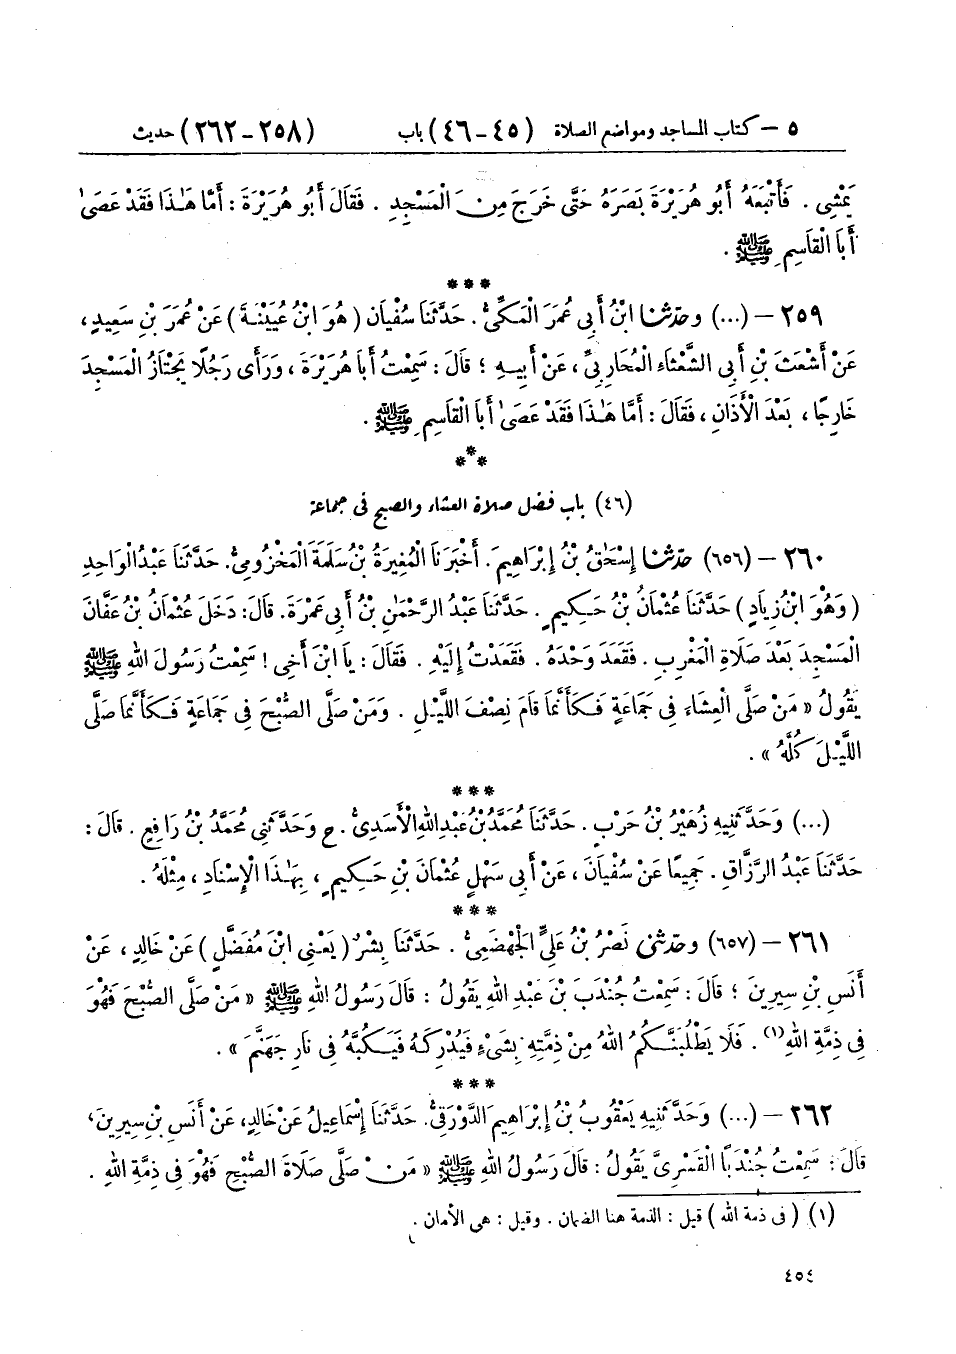 ٥ – كتاب المساجد ومواضع الصلاة (٤٥-٤٦) باب (٢٥٨-٢٦٢) حديث
يَمْشِي . فَأَتْبَعَهُ أَبُو هُرَيْرَةَ بَصَرَهُ حَتَّى خَرَجَ مِنَ الْمَسْجِدِ . فَقَالَ أَبُو هُرَيْرَةَ : أَمَّا هَٰذَا فَقَدْ عَصَىٰ
أَبَا الْقَاسِمِ ﷺ .
***
٢٥٩ – (...) وحدثنا ابْنُ أَبِي عُمَرَ الْمَكِّيُّ . حَدَّثَنَا سُفْيَان ( هُوَ ابْنُ عُيَيْنَةَ ) عَنْ عُمَرَ بْنِ سَعِيدٍ ،
عَنْ أَشْعَثَ بْنِ أَبِي الشَّعْثَاءِ الْمُحَارِبِيِّ ، عَنْ أَبِيهِ ؛ قَالَ : سَمِعْتُ أَبَا هُرَيْرَةَ ، وَرَأَى رَجُلًا يَجْتَازُ الْمَسْجِدَ
خَارِجًا ، بَعْدَ الْأَذَانِ ، فَقَالَ : أَمَّا هَٰذَا فَقَدْ عَصَىٰ أَبَا الْقَاسِمِ ﷺ .
***
(٤٦) باب فضل صلاة العشاء والصبح فى جماعة
٢٦٠ – (٦٥٦) حدّثنا إِسْحَاقُ بْنُ إِبْرَاهِيمَ . أَخْبَرَنَا الْمُغِيرَةُ بْنُ سَلَمَةَ الْمَخْزُومِيُّ . حَدَّثَنَا عَبْدُ الْوَاحِدِ
( وَهُوَ ابْنُ زِيَادٍ ) حَدَّثَنَا عُثْمَانُ بْنُ حَكِيمٍ . حَدَّثَنَا عَبْدُ الرَّحْمَٰنِ بْنُ أَبِي عَمْرَةَ . قَالَ : دَخَلَ عُثْمَانُ بْنُ عَفَّانَ
الْمَسْجِدَ بَعْدَ صَلَاةِ الْمَغْرِبِ . فَقَعَدَ وَحْدَهُ . فَقَعَدْتُ إِلَيْهِ . فَقَالَ : يَا ابْنَ أَخِي ! سَمِعْتُ رَسُولَ اللهِ ﷺ
يَقُولُ « مَنْ صَلَّى الْعِشَاءَ فِي جَمَاعَةٍ فَكَأَنَّمَا قَامَ نِصْفَ اللَّيْلِ . وَمَنْ صَلَّى الصُّبْحَ فِي جَمَاعَةٍ فَكَأَنَّمَا صَلَّى
اللَّيْلَ كُلَّهُ » .
***
(...) وَحَدَّثَنِيهِ زُهَيْرُ بْنُ حَرْبٍ . حَدَّثَنَا مُحَمَّدُ بْنُ عَبْدِ اللهِ الْأَسَدِيُّ . ح وَحَدَّثَنِي مُحَمَّدُ بْنُ رَافِعٍ . قَالَ :
حَدَّثَنَا عَبْدُ الرَّزَّاقِ . جَمِيعًا عَنْ سُفْيَانَ ، عَنْ أَبِي سَهْلٍ عُثْمَانَ بْنِ حَكِيمٍ ، بِهَٰذَا الْإِسْنَادِ ، مِثْلَهُ .
***
٢٦١ – (٦٥٧) وحدثنى نَصْرُ بْنُ عَلِيٍّ الْجَهْضَمِيُّ . حَدَّثَنَا بِشْرٌ ( يَعْنِي ابْنَ مُفَضَّلٍ ) عَنْ خَالِدٍ ، عَنْ
أَنَسِ بْنِ سِيرِينَ ؛ قَالَ : سَمِعْتُ جُنْدَبَ بْنَ عَبْدِ اللهِ يَقُولُ : قَالَ رَسُولُ اللهِ ﷺ « مَنْ صَلَّى الصُّبْحَ فَهُوَ
فِي ذِمَّةِ اللهِ (١) . فَلَا يَطْلُبَنَّكُمُ اللهُ مِنْ ذِمَّتِهِ بِشَيْءٍ فَيُدْرِكَهُ فَيَكُبَّهُ فِي نَارِ جَهَنَّمَ » .
***
٢٦٢ – (...) وَحَدَّثَنِيهِ يَعْقُوبُ بْنُ إِبْرَاهِيمَ الدَّوْرَقِيُّ . حَدَّثَنَا إِسْمَاعِيلُ عَنْ خَالِدٍ ، عَنْ أَنَسِ بْنِ سِيرِينَ ،
قَالَ : سَمِعْتُ جُنْدَبًا الْقَسْرِيَّ يَقُولُ : قَالَ رَسُولُ اللهِ ﷺ « مَنْ صَلَّى صَلَاةَ الصُّبْحِ فَهُوَ فِي ذِمَّةِ اللهِ .
(١) ( فى ذمة الله ) قيل : الذمة هنا الضمان . وقيل : هى الأمان .
٤٥٤